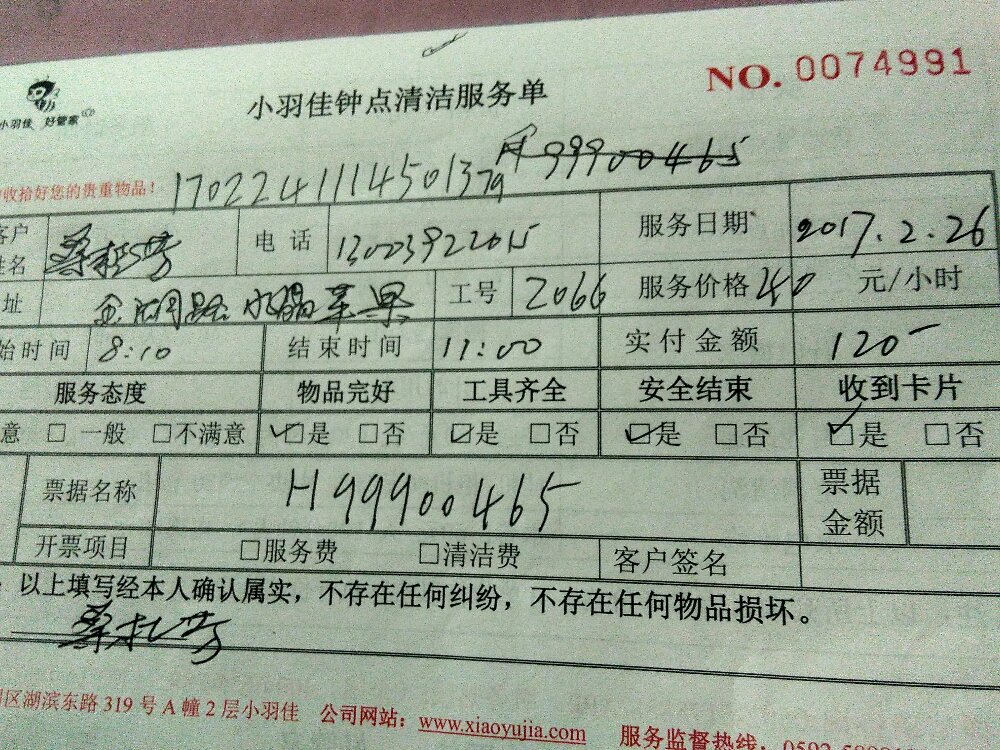 小羽佳钟点清洁服务单 NO. 0074991
小羽佳 好管家
收拾好您的贵重物品！ 170224111450137 99900465
客户姓名 电话 13003922015 服务日期 2017.2.26
址 金湖路水晶苹果 工号 2066 服务价格 40 元/小时
始时间 8:10 结束时间 11:00 实付金额 120
服务态度 物品完好 工具齐全 安全结束 收到卡片
意 □一般 □不满意 ☑是 □否 ☑是 □否 ☑是 □否 ☑是 □否
票据名称 H99900465 票据金额
开票项目 □服务费 □清洁费 客户签名
以上填写经本人确认属实，不存在任何纠纷，不存在任何物品损坏。
区湖滨东路 319 号 A 幢 2 层小羽佳 公司网站：www.xiaoyujia.com 服务监督热线：